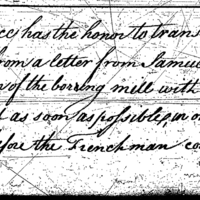 has the honor to trans
from a letter from Samue
of the borring mill with
as soon as possible, in o
fore the Frenchman co